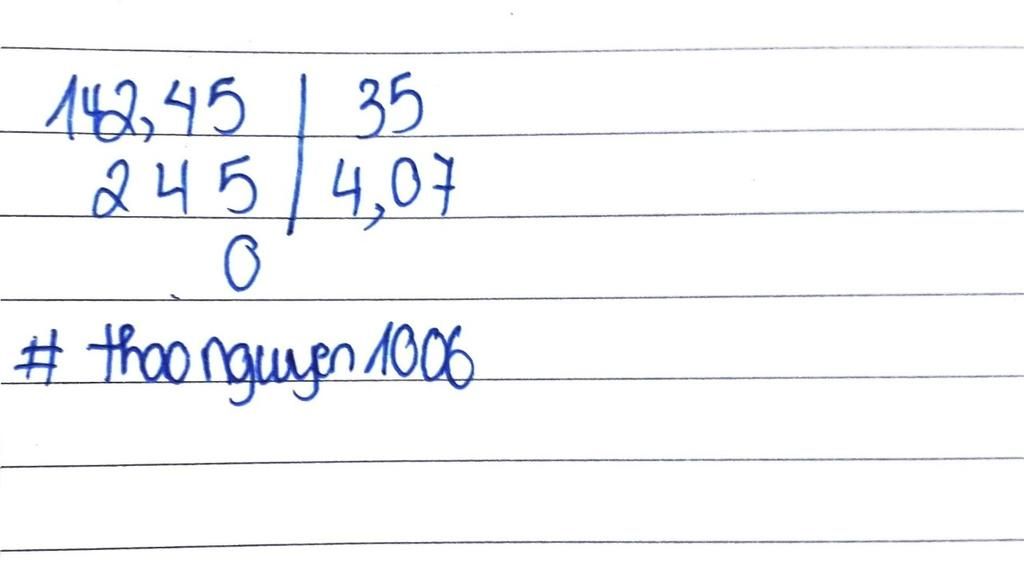 142,45 | 35
245 | 4,07
0
# thaonguyen1006